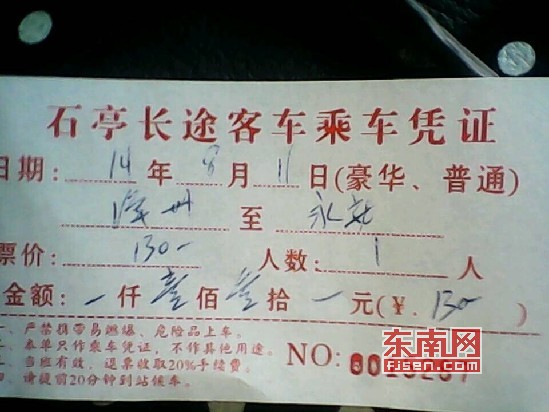 石亭长途客车乘车凭证
日期: 14 年 8 月 11 日(豪华、普通)
漳州 至 永安
票价: 130- 人数: 1 人
金额: 一 仟 壹 佰 叁 拾 一 元(￥. 130- )
一、严禁携带易燃爆、危险品上车。
二、本单只作乘车凭证,不作其他用途。
三、当班有效,退票收取20%手续费。
四、请提前20分钟到站候车。
NO:
东南网
fjsen.com